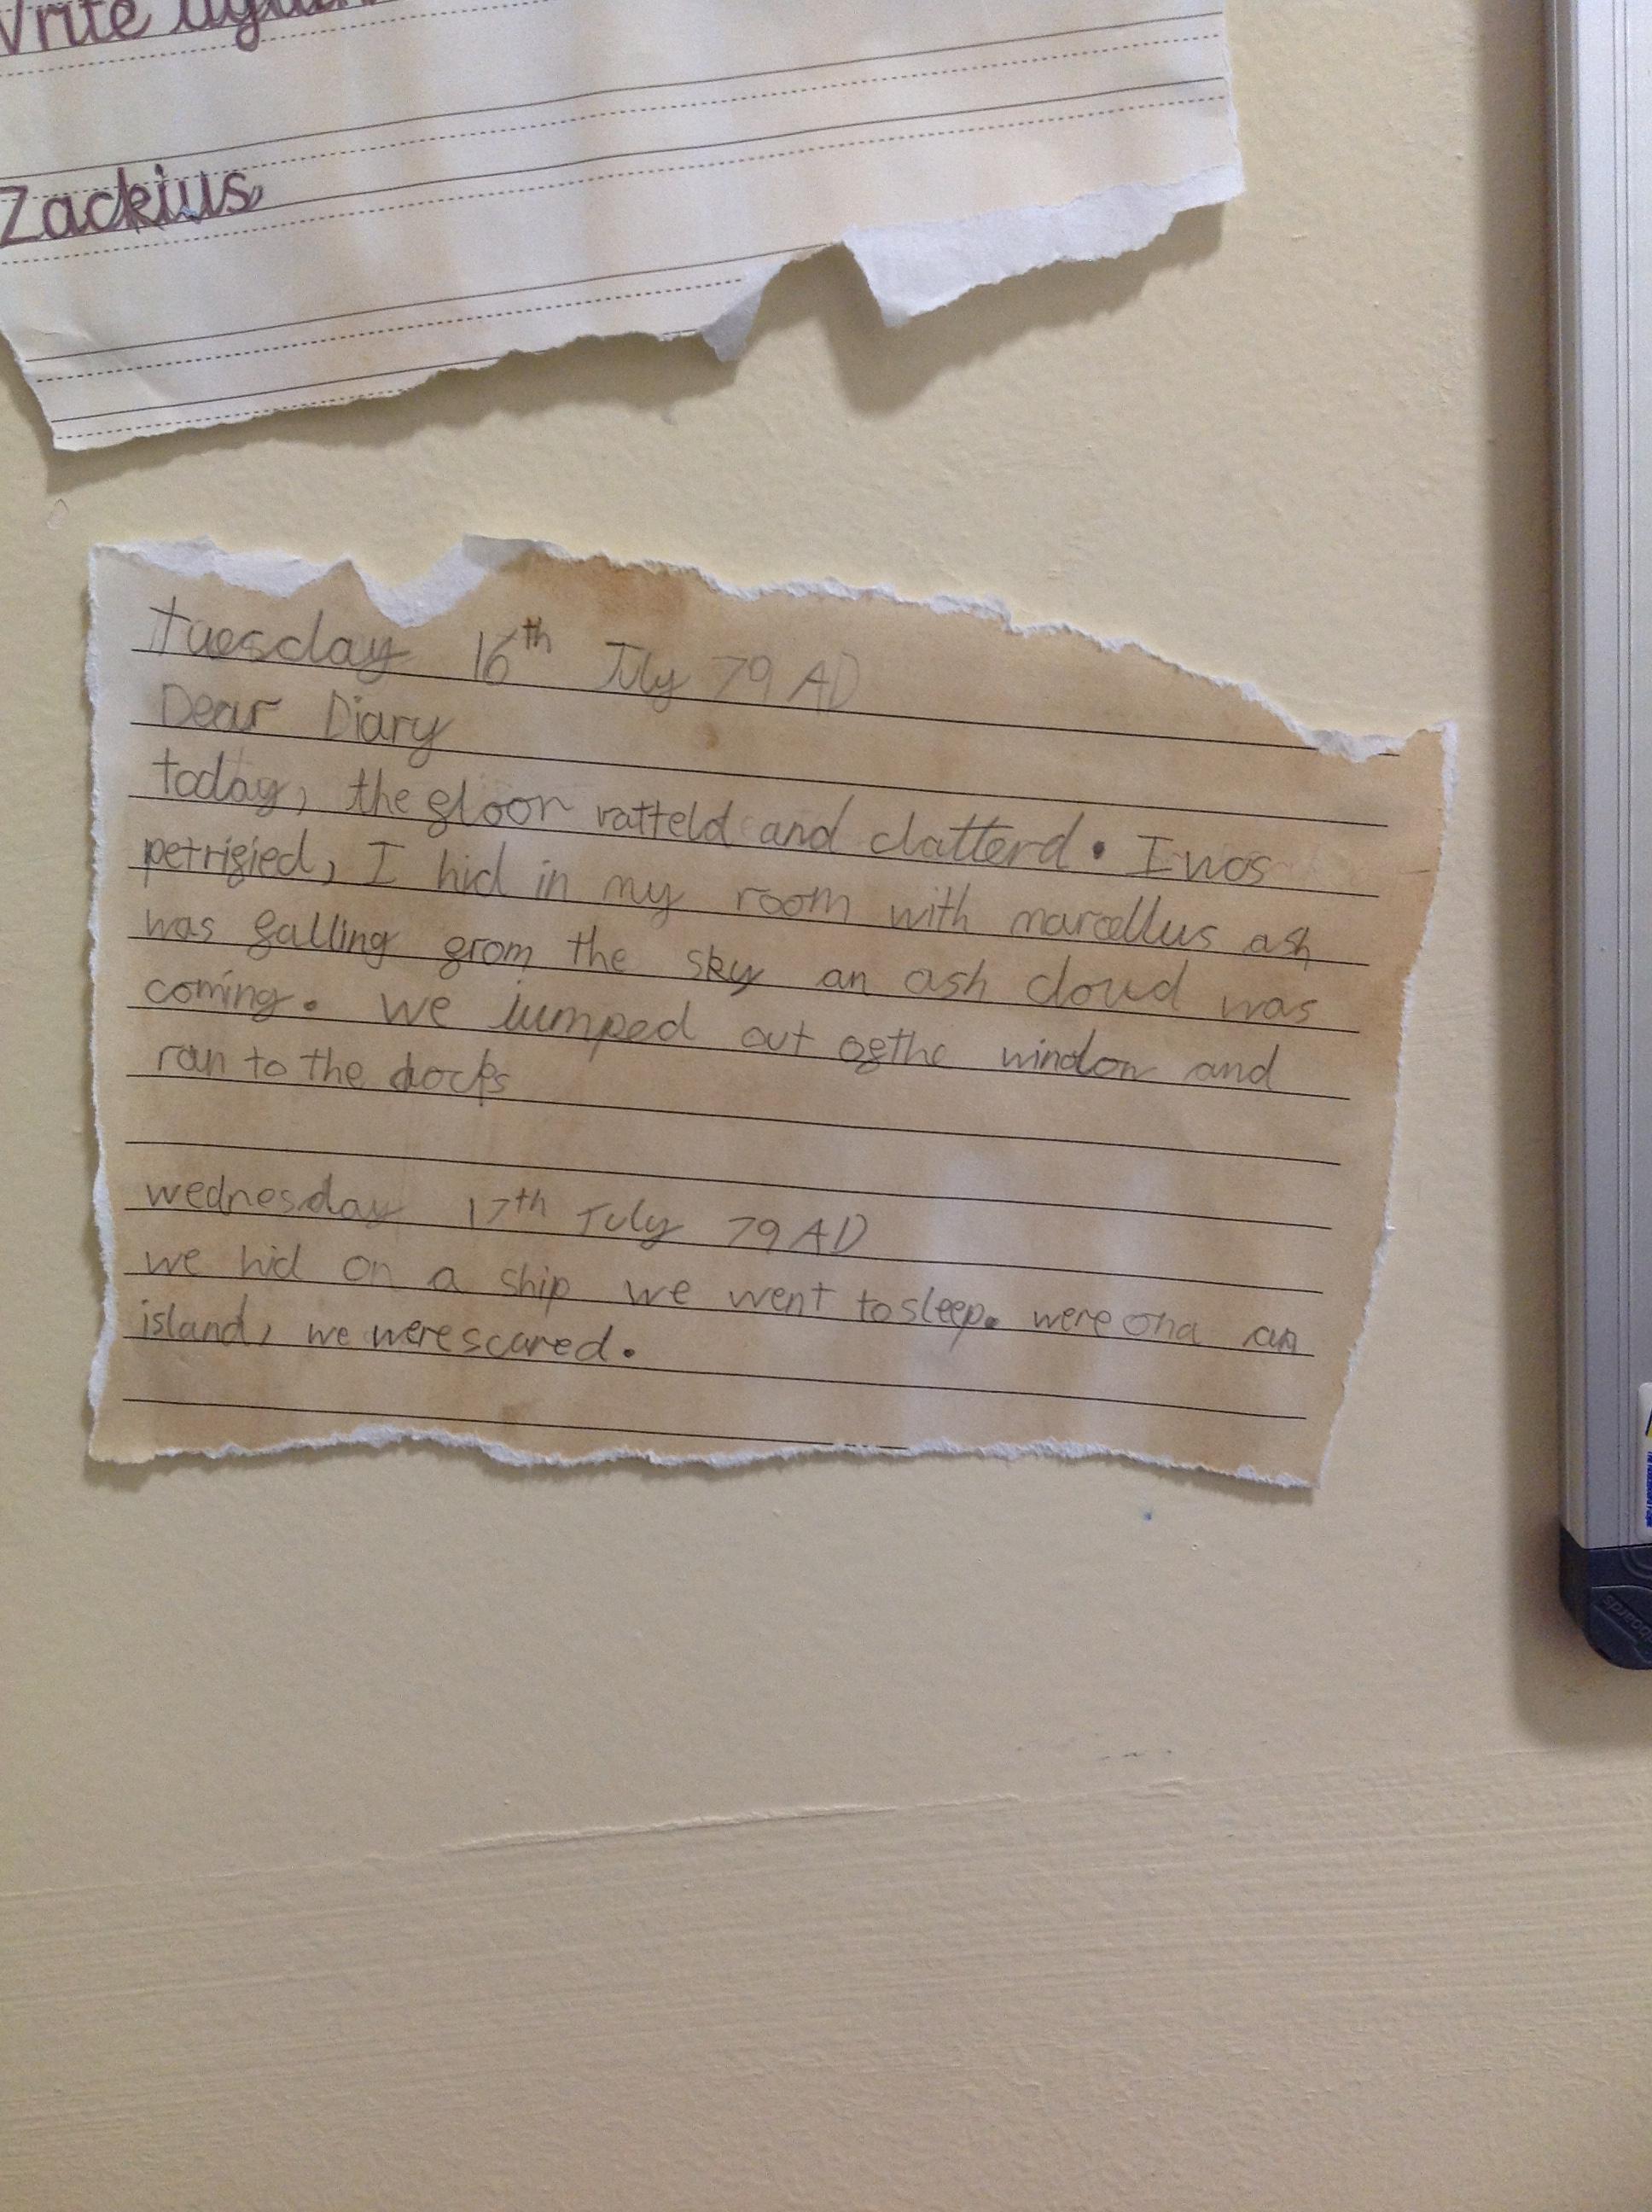 Write again
Zackius
tuesday 16th July 79 AD
Dear Diary
today, the floor ratteld and clatterd. I was
petrified, I hid in my room with marcellus ash
was falling from the sky an ash cloud was
coming. we jumped out of the window and
ran to the docks
wednesday 17th July 79 AD
we hid on a ship we went to sleep. were ona an
island, we were scared.